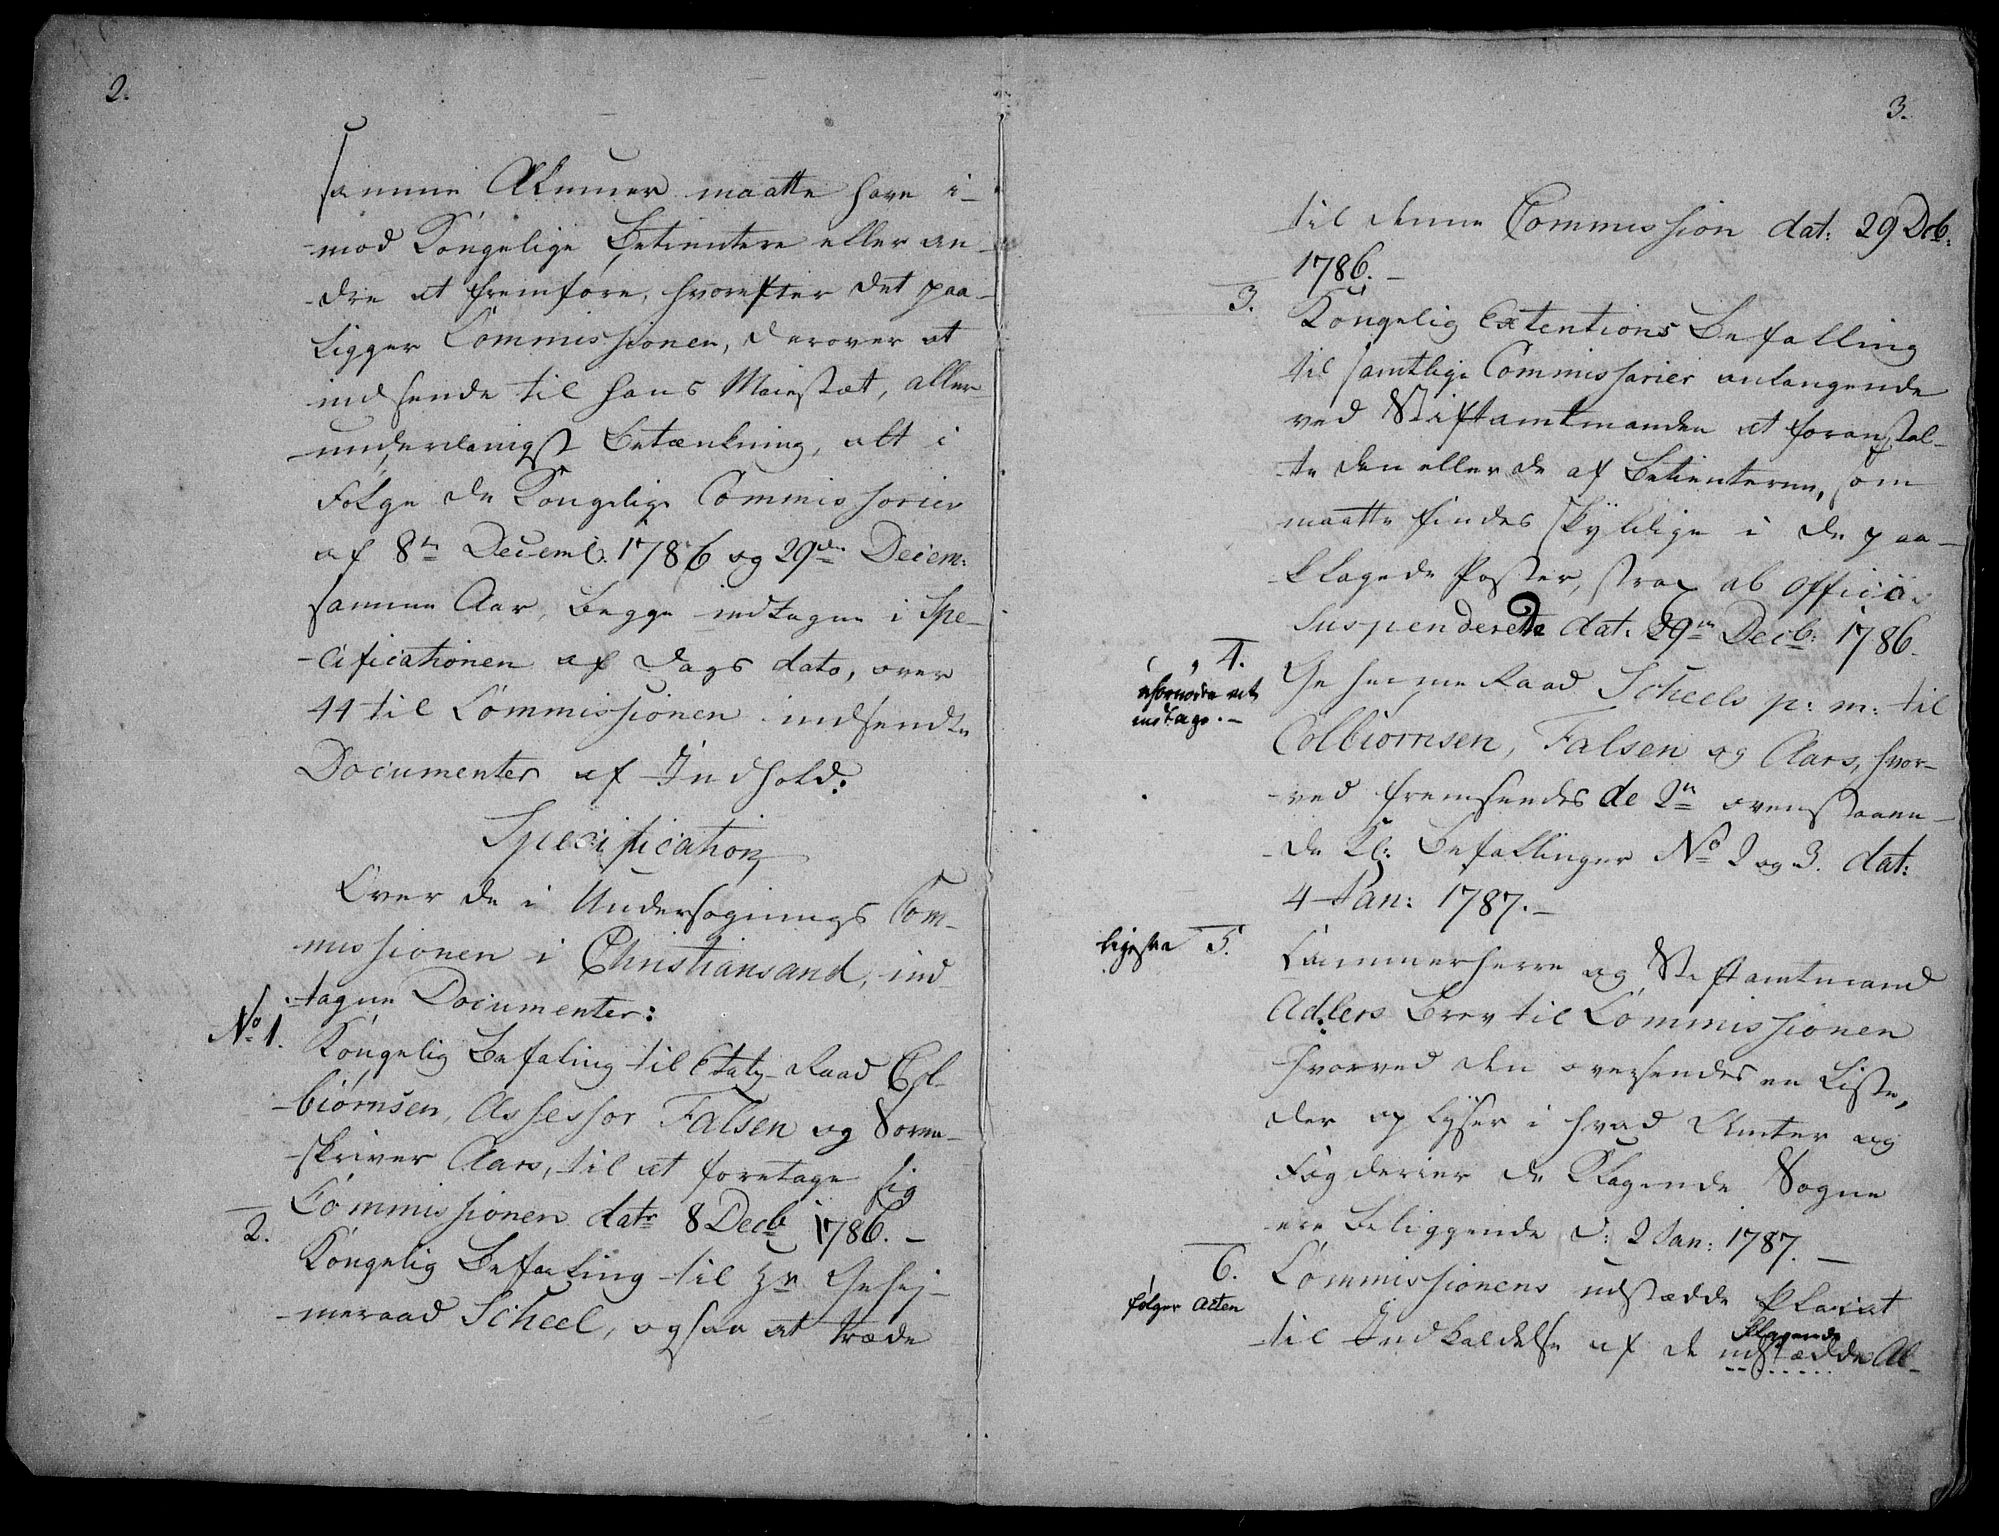 2.
samme Almuer maatte have i-
mod Kongelige Betientere eller an-
dre at fremføre, hvorefter det paa-
ligger Commissionen, derover at
indsende til Hans Maiestæt, aller-
underdanigst Betænkning, alt i
Følge de Kongelige Commissorier
af 8de Decemb: 1786 og 29de Decem:
samme Aar, begge indtagne i Spe-
cificationen af Dags dato, over
44 til Commissionen indsendte
Documenter af Indhold:
Specification,
Over de i Undersøgnings Com-
missionen i Christiansand, ind-
tagne Documenter:
No 1. Kongelig Befaling til Etats Raad Col-
biørnsen, Assessor Falsen og Soren-
skriver Aars, til at foretage sig
Commissionen datr 8 Decb 1786. –
2. Kongelig Befaling til Hr Gehej-
meraad Scheel, ogsaa at træde
3.
til denne Commission dat: 29 Dcb:
1786. –
3. Kongelig Extentions Befalling
til samtlige Commissarier anlangende
ved Stiftamtmanden at foranstal-
te den eller de af Betienterne, som
maatte findes skyldige i de paa-
klagede Poster, strax ab officio
suspenderede dat. 29de Decb: 1786.
4. Geheime Raad Scheels p: m: til
ufornøden at
indtage. –
Colbiørnsen, Falsen og Aars, hvor-
ved fremsendes de 2de ovenstaaen-
de Kl: Befallinger No 2 og 3. dat:
4 Jan: 1787. –
ligesaa 5. Cammerherre og Stiftamtmand
Adlers Brev til Commissionen
hvorved den oversendes en Liste,
der oplyser i hvad Amter og
Fogderier de Klagende Sogne
ere beliggende d: 2 Jan: 1787. –
6. Commissionens udstædde Placat
følger Acten
til Indkaldelse af de udstædde Al-
Klagende